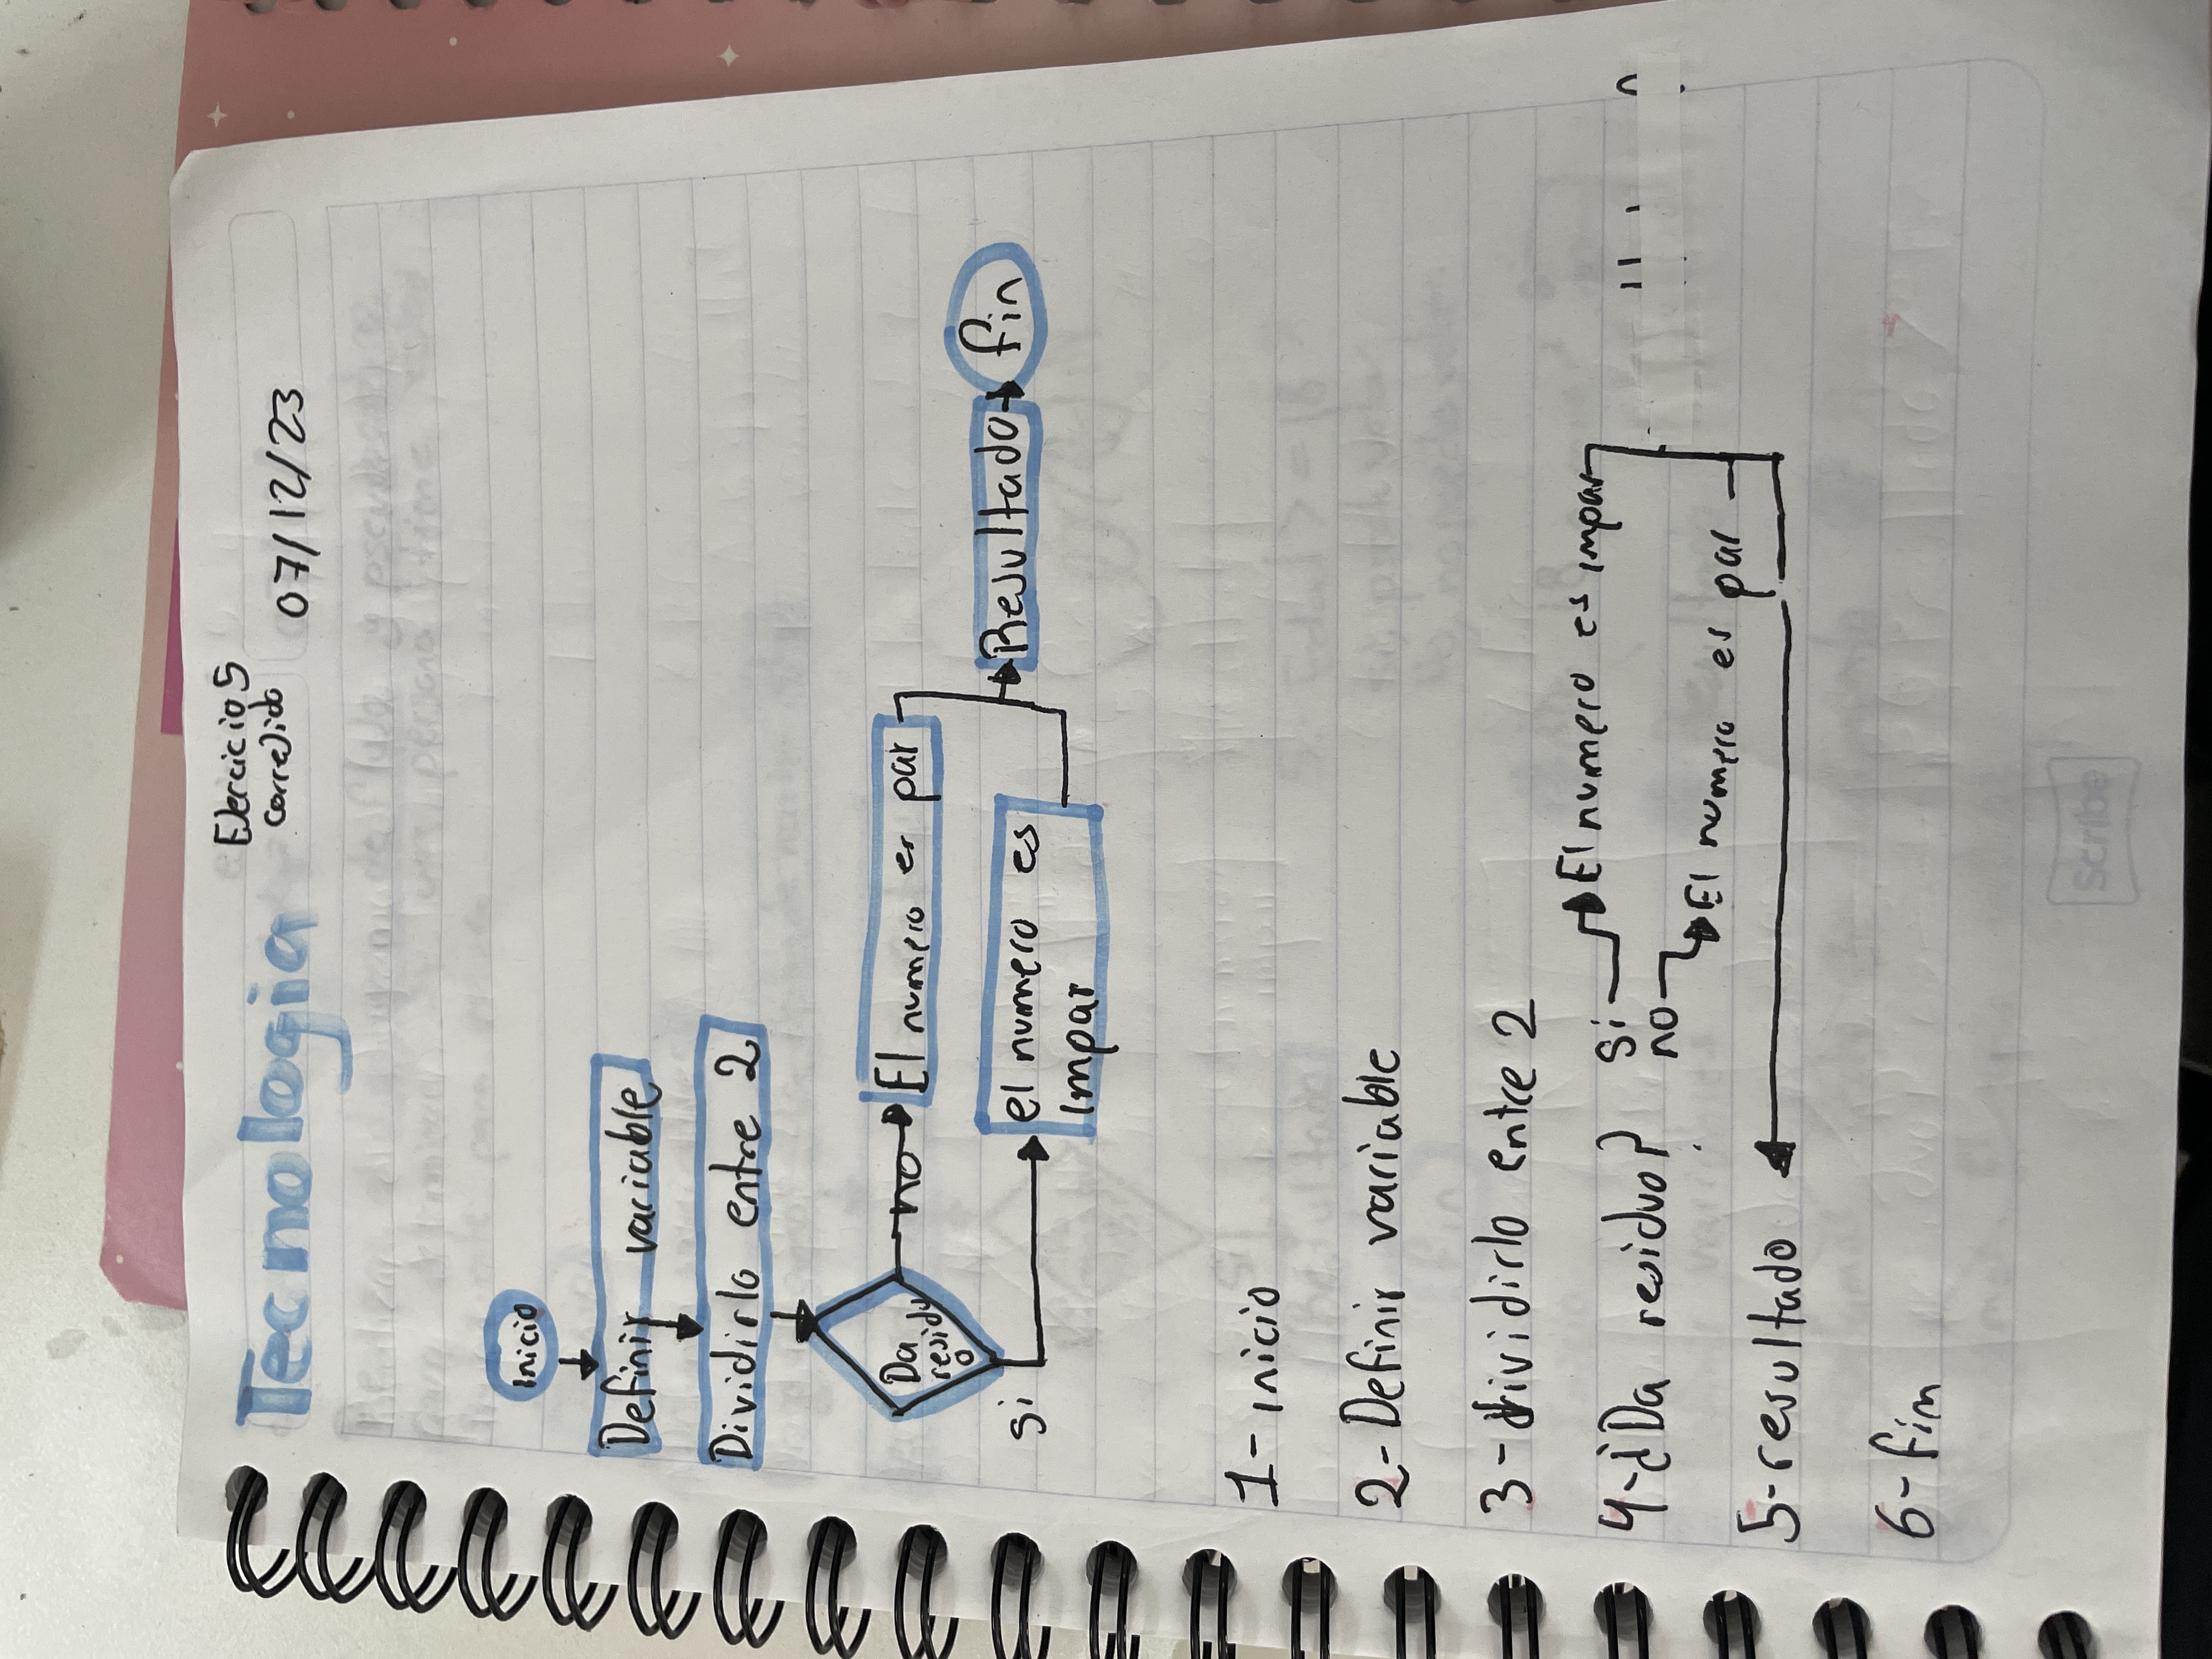 Ejercicio 5
corregido
Tecnologia
07/12/23
Inicio
Definir variable
Dividirlo entre 2
Da
residu
o
no
El numero es par
si
el numero es
Impar
Resultado
fin
1- inicio
2- Definir variable
3- dividirlo entre 2
4- ¿Da residuo? Si El numero es impar
no El numero es par
5- resultado
6- fin
Scribe